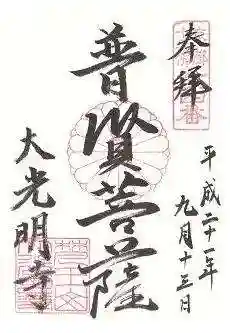 奉拜
平成二十一年
九月十三日
普賢菩薩
大光明寺